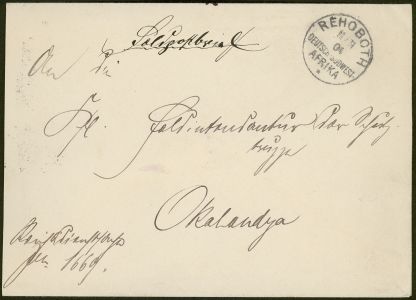 Feldpostbrief
REHOBOTH
11/7
04
DEUTSCH-SÜDWEST-
AFRIKA
An die
Kgl. Feldintendantur der Schutz-
truppe
Okahandja
Reichsdienstsache
1669.